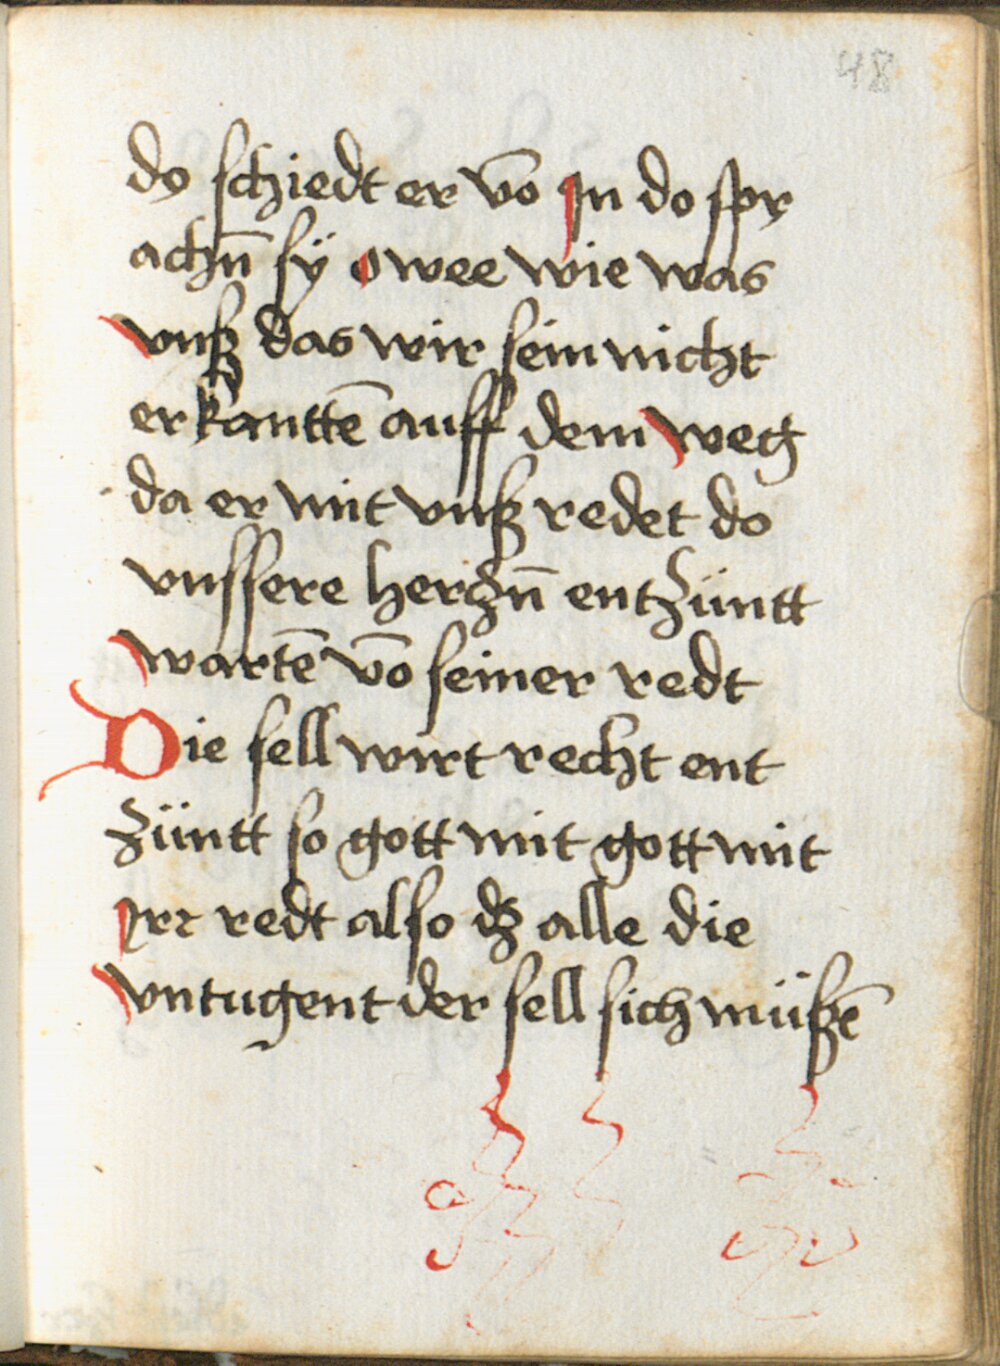 48
do schiedt er vō Jn do spr
achn̄ sÿ o wee wie was
vnß das wir sein nicht
erkanttē auff dem weg
da er mit vnß redet do
vnssere herczn̄ entzüntt
wartē vō seiner redt
Die sell wirt recht ent
züntt so gott mit gott mit
Jrr redt also dz alle die
vntugent der sell sich müßē